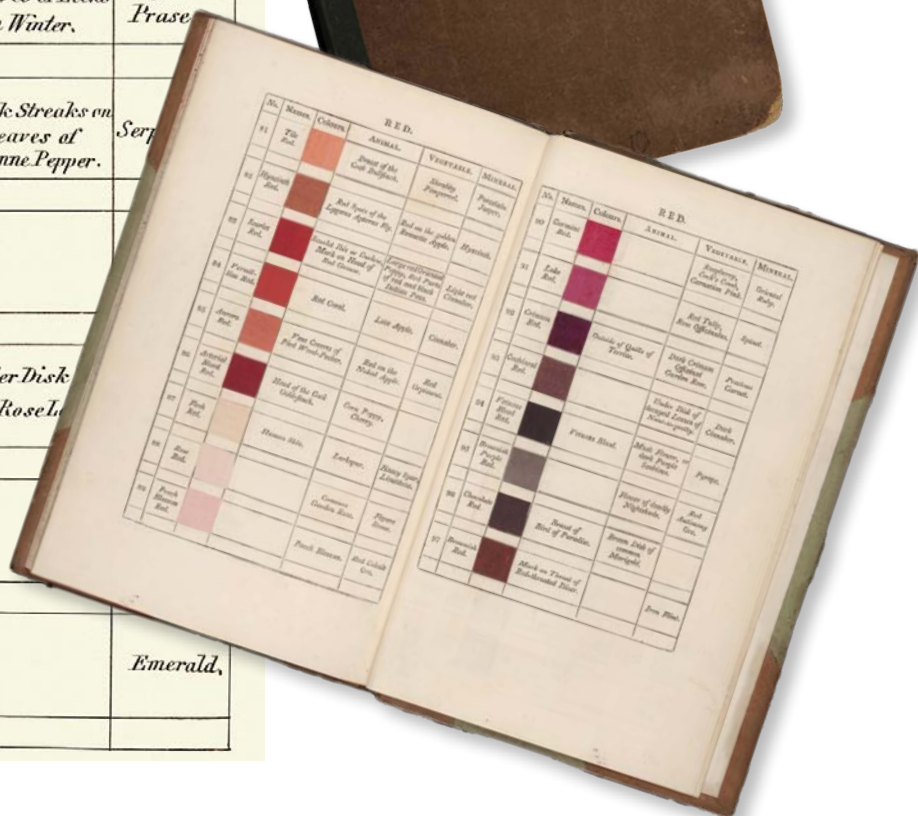 Winter.
Prase
k Streaks on
eaves of
nne Pepper.
Serp
er Disk
Rose L
Emerald.
RED.
No. Names. Colours. ANIMAL. VEGETABLE. MINERAL.
81 Tile Red. Breast of the Cock Bullfinch. Shrubby Pimpernel. Porcelain Jasper.
82 Hyacinth Red. Red Spots of the Lygaeus Apterus Fly. Red on the golden Rennette Apple. Hyacinth.
83 Scarlet Red. Scarlet Ibis or Curlew, Mark on Head of Red Grouse. Large red Oriental Poppy, Red Parts of red and black Indian Peas. Light red Cinnaber.
84 Vermilion Red. Red Coral. Love Apple. Cinnaber.
85 Aurora Red. Vent Coverts of Pied Wood-Pecker. Red on the Naked Apple. Red Orpiment.
86 Arterial Blood Red. Head of the Cock Gold-finch. Corn Poppy, Cherry.
87 Flesh Red. Human Skin. Larkspur. Heavy Spar, Limestone.
88 Rose Red. Common Garden Rose. Figure Stone.
89 Peach Blossom Red. Peach Blossom. Red Cobalt Ore.
RED.
No. Names. Colours. ANIMAL. VEGETABLE. MINERAL.
90 Carmine Red. Raspberry, Cock's Comb, Carnation Pink. Oriental Ruby.
91 Lake Red. Red Tulip, Rose Officinalis. Spinel.
92 Crimson Red. Outside of Quills of Terrico. Dark Crimson Officinal Garden Rose. Precious Garnet.
93 Red. Under Disk of decayed Leaves of None-so-pretty. Dark Cinnaber.
94 Veinous Blood Red. Veinous Blood. Musk Flower, or dark Purple Scabious. Pyrope.
95 Brownish Purple Red. Flower of deadly Nightshade. Red Antimony Ore.
96 Chocolate Red. Breast of Bird of Paradise. Brown Disk of common Marigold.
97 Brownish Red. Mark on Throat of Red-throated Diver. Iron Flint.